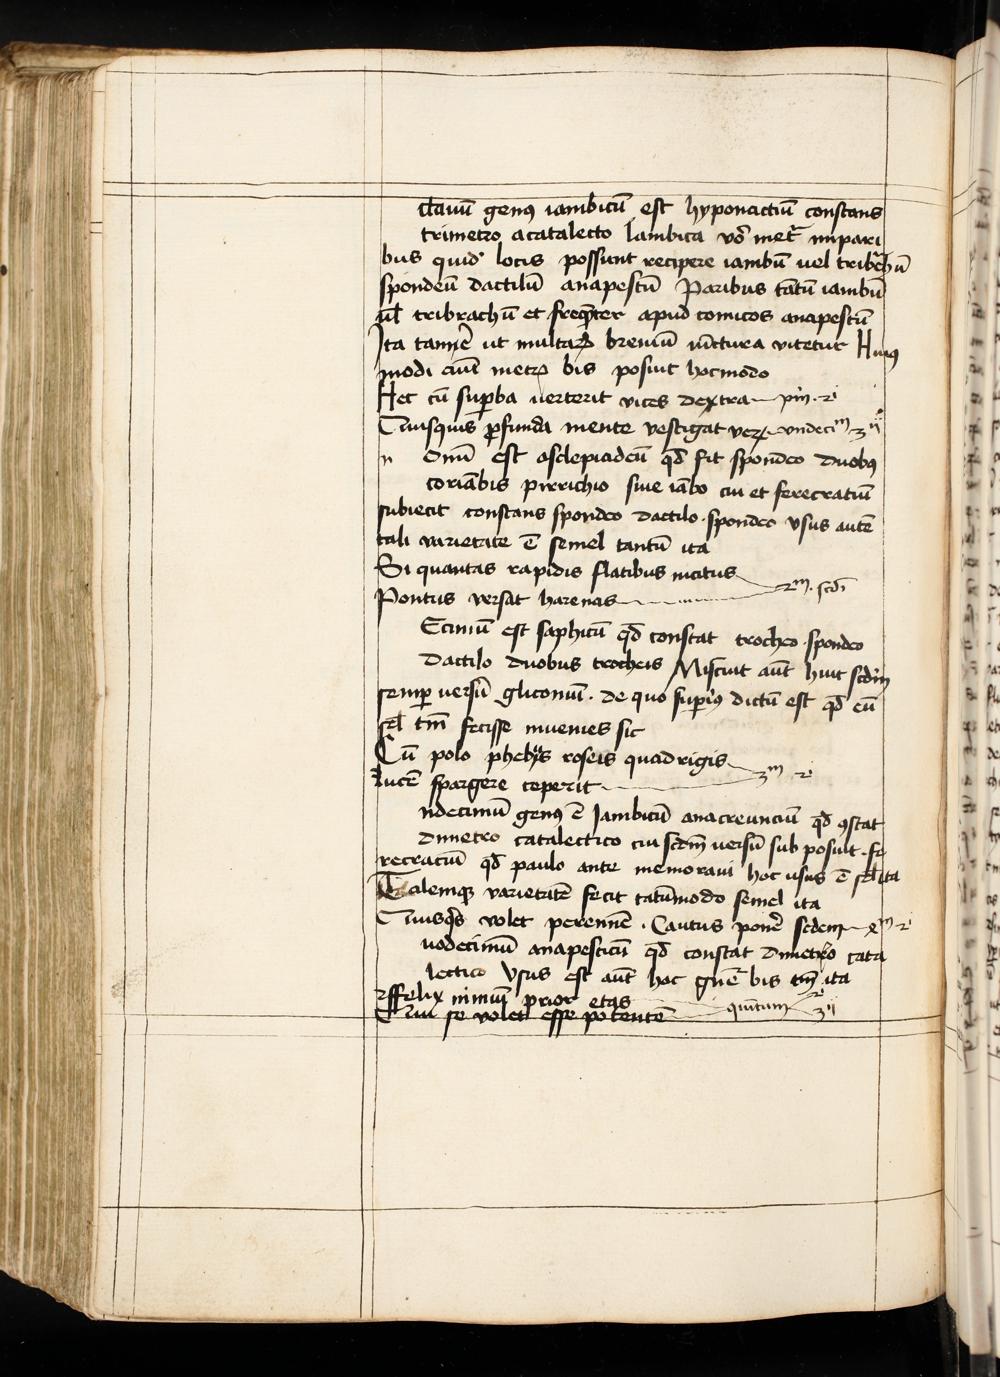 ctauū genꝯ iambicū est hyponactiū constans
trimetro acatalecto Iambica vō metͣ impari
bus quidͤ locis possunt recipere iambū uel tribͣchū
spondeū dactilū anapestū Paribus tātū iambū
ul̄ tribrachū et freqn̄ter apud comicos anapestū
Ita tamē ut multaꝝ breuiū iūctura vitetur Huiꝯ
modi aūt metro bis posiuit hocmodo
Hec cū suꝑba uerterit vices dextra pͥm
Quisquis ꝓfunda mente vestigat veꝝ vndecīᵐ
n Onū est asclepiadeū qd̄ fit spondeo duobꝯ
coriābis pirrichio siue iābo cui et ferecratiū
subiecit constans spondeo dactilo · spondeo vsus autē
tali varietate ē semel tantū ita
Si quantas rapidis flatibus incitus
Pontus versat harenas 2ᵐ · scd̄i
Ecimū est saphicū qd̄ constat trocheo · spondeo
dactilo duobus trocheis Miscuit aūt huic scdm̄
semꝑ uersū gliconiū · de quo suꝑiꝯ dictū est qd̄ eū
sel̄ tm̄ fecisse inuenies sic
Cū polo phebꝯ roseis quadrigis
Lucē spargere ceperit 3ᵐ 2ⁱ
ndecimū genꝯ ē Iambicū anacreunciū qd̄ ꝯstat
dimetro catalectico cui scdm̄ uersū sub posuit · fe
recraciū qd̄ paulo ante memoraui hoc usus ē sel̄ ita
Talemqꝫ varietatē fecit tātūmodo semel ita
Quisqͥs volet perennē · Cautus ponē sedem 4ᵐ 2ⁱ
uodecimū anapesticū qd̄ constat dimetro cata
lectico Vsus est aūt hoc gn̄e bis tm̄ ita
Felix nimiū prior etas
Qui se volet esse potentē quintum